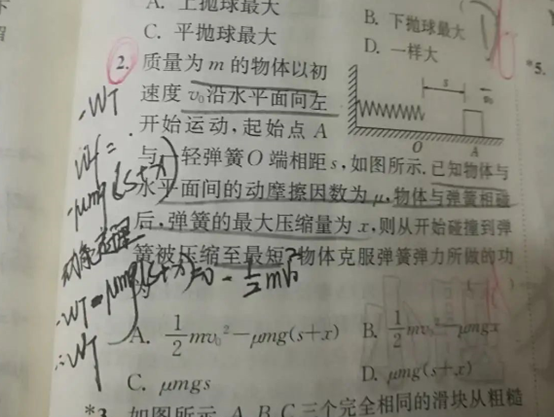 A. 上抛球最大
B. 下抛球最大
C. 平抛球最大
D. 一样大
*5.
2. 质量为 m 的物体以初
速度 v₀ 沿水平面向左
开始运动,起始点 A
与一轻弹簧 O 端相距 s,如图所示.已知物体与
水平面间的动摩擦因数为 μ,物体与弹簧相碰
后,弹簧的最大压缩量为 x,则从开始碰撞到弹
簧被压缩至最短,物体克服弹簧弹力所做的功
s
v₀
O
A
A. 1/2 mv₀²-μmg(s+x)
B. 1/2 mv₀²-μmgx
C. μmgs
D. μmg(s+x)
*3. 如图所示,A、B、C三个完全相同的滑块从粗糙
-WT
Wf=
-μmg(s+x)
动能定理
-WT-μmg(s+x)=0-1/2mv₀²
∴WT